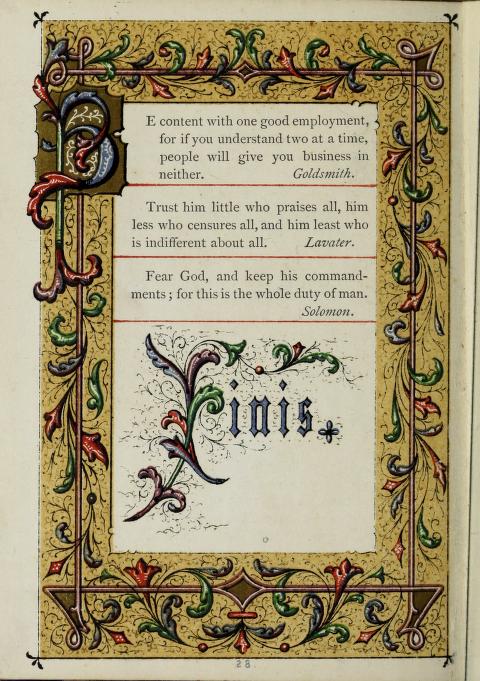 BE content with one good employment,
for if you understand two at a time,
people will give you business in
neither. Goldsmith.
Trust him little who praises all, him
less who censures all, and him least who
is indifferent about all. Lavater.
Fear God, and keep his command-
ments ; for this is the whole duty of man.
Solomon.
Finis.
28